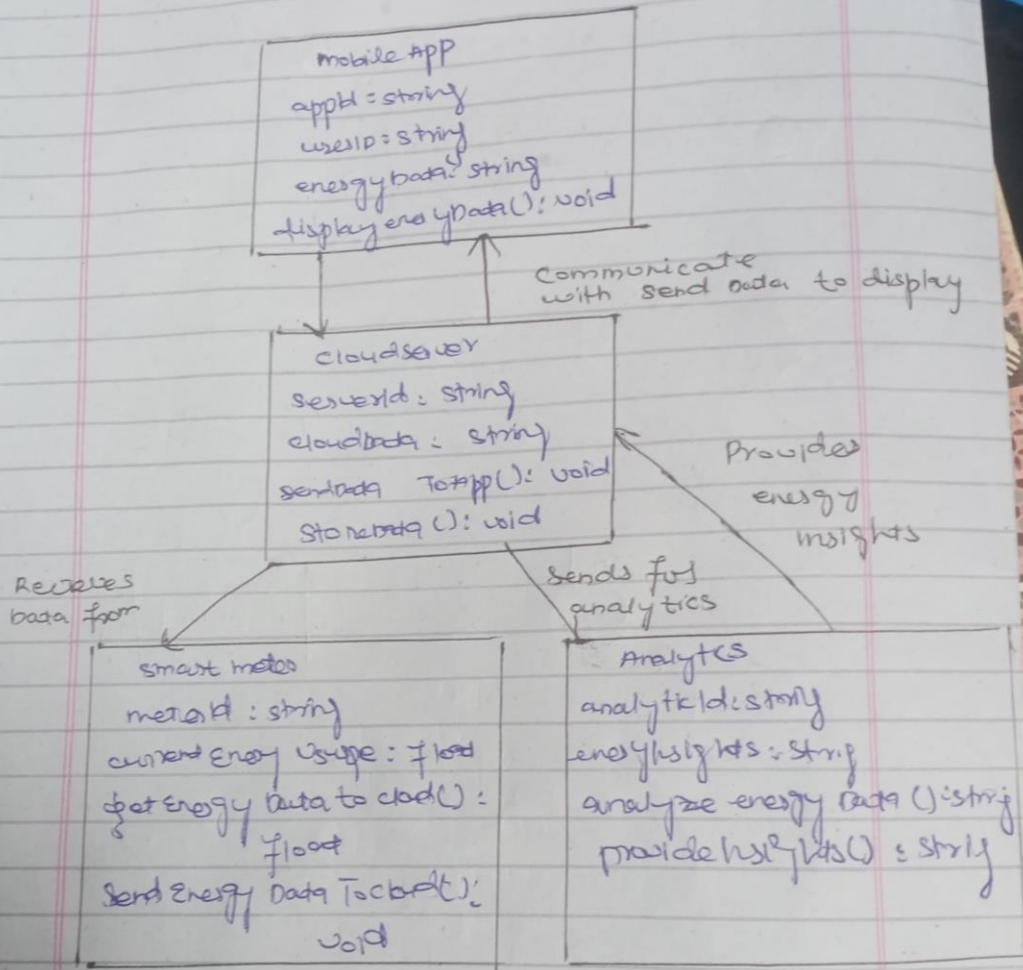 mobile App
appId = string
userID = string
energyData: string
displayeneyData(): void
Communicate
with send Data to display
cloudserver
serverId: string
cloudData: string
sendData ToApp(): void
StoreData(): void
Provides
energy
insights
Receives
Data from
sends for
analytics
smart meter
meterId: string
current Enery Usage: float
get Energy Data to cloud():
float
Send Energy Data To cloud():
void
Analytcs
analyticId: string
eneryInsights: string
analyze energy Data(): string
provideInsights(): string